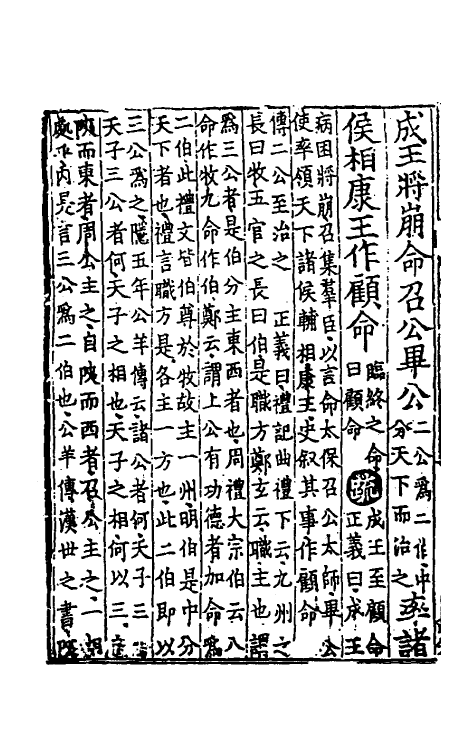 成王將崩命召公畢公二公爲二伯中分天下而治之率諸
侯相康王作顧命臨終之命曰顧命疏成王至顧命正義曰成王
病困將崩召集羣臣以言命太保召公太師畢公
使率領天下諸侯輔相康王史叙其事作顧命
傳二公至治之 正義曰禮記曲禮下云九州之
長曰牧五官之長曰伯是職方鄭玄云職主也謂
爲三公者是伯分主東西者也周禮大宗伯云八
命作牧九命作伯鄭云謂上公有功德者加命爲
二伯此禮文皆伯尊於牧故主一州明伯是中分
天下者也禮言職方是各主一方也此二伯即以
三公爲之隱五年公羊傳云諸公者何天子三公
天子三公者何天子之相也天子之相何以三
陜而東者周公主之自陜而西者召公主之一相
處乎內是言三公爲二伯也公羊傳漢世之書陜